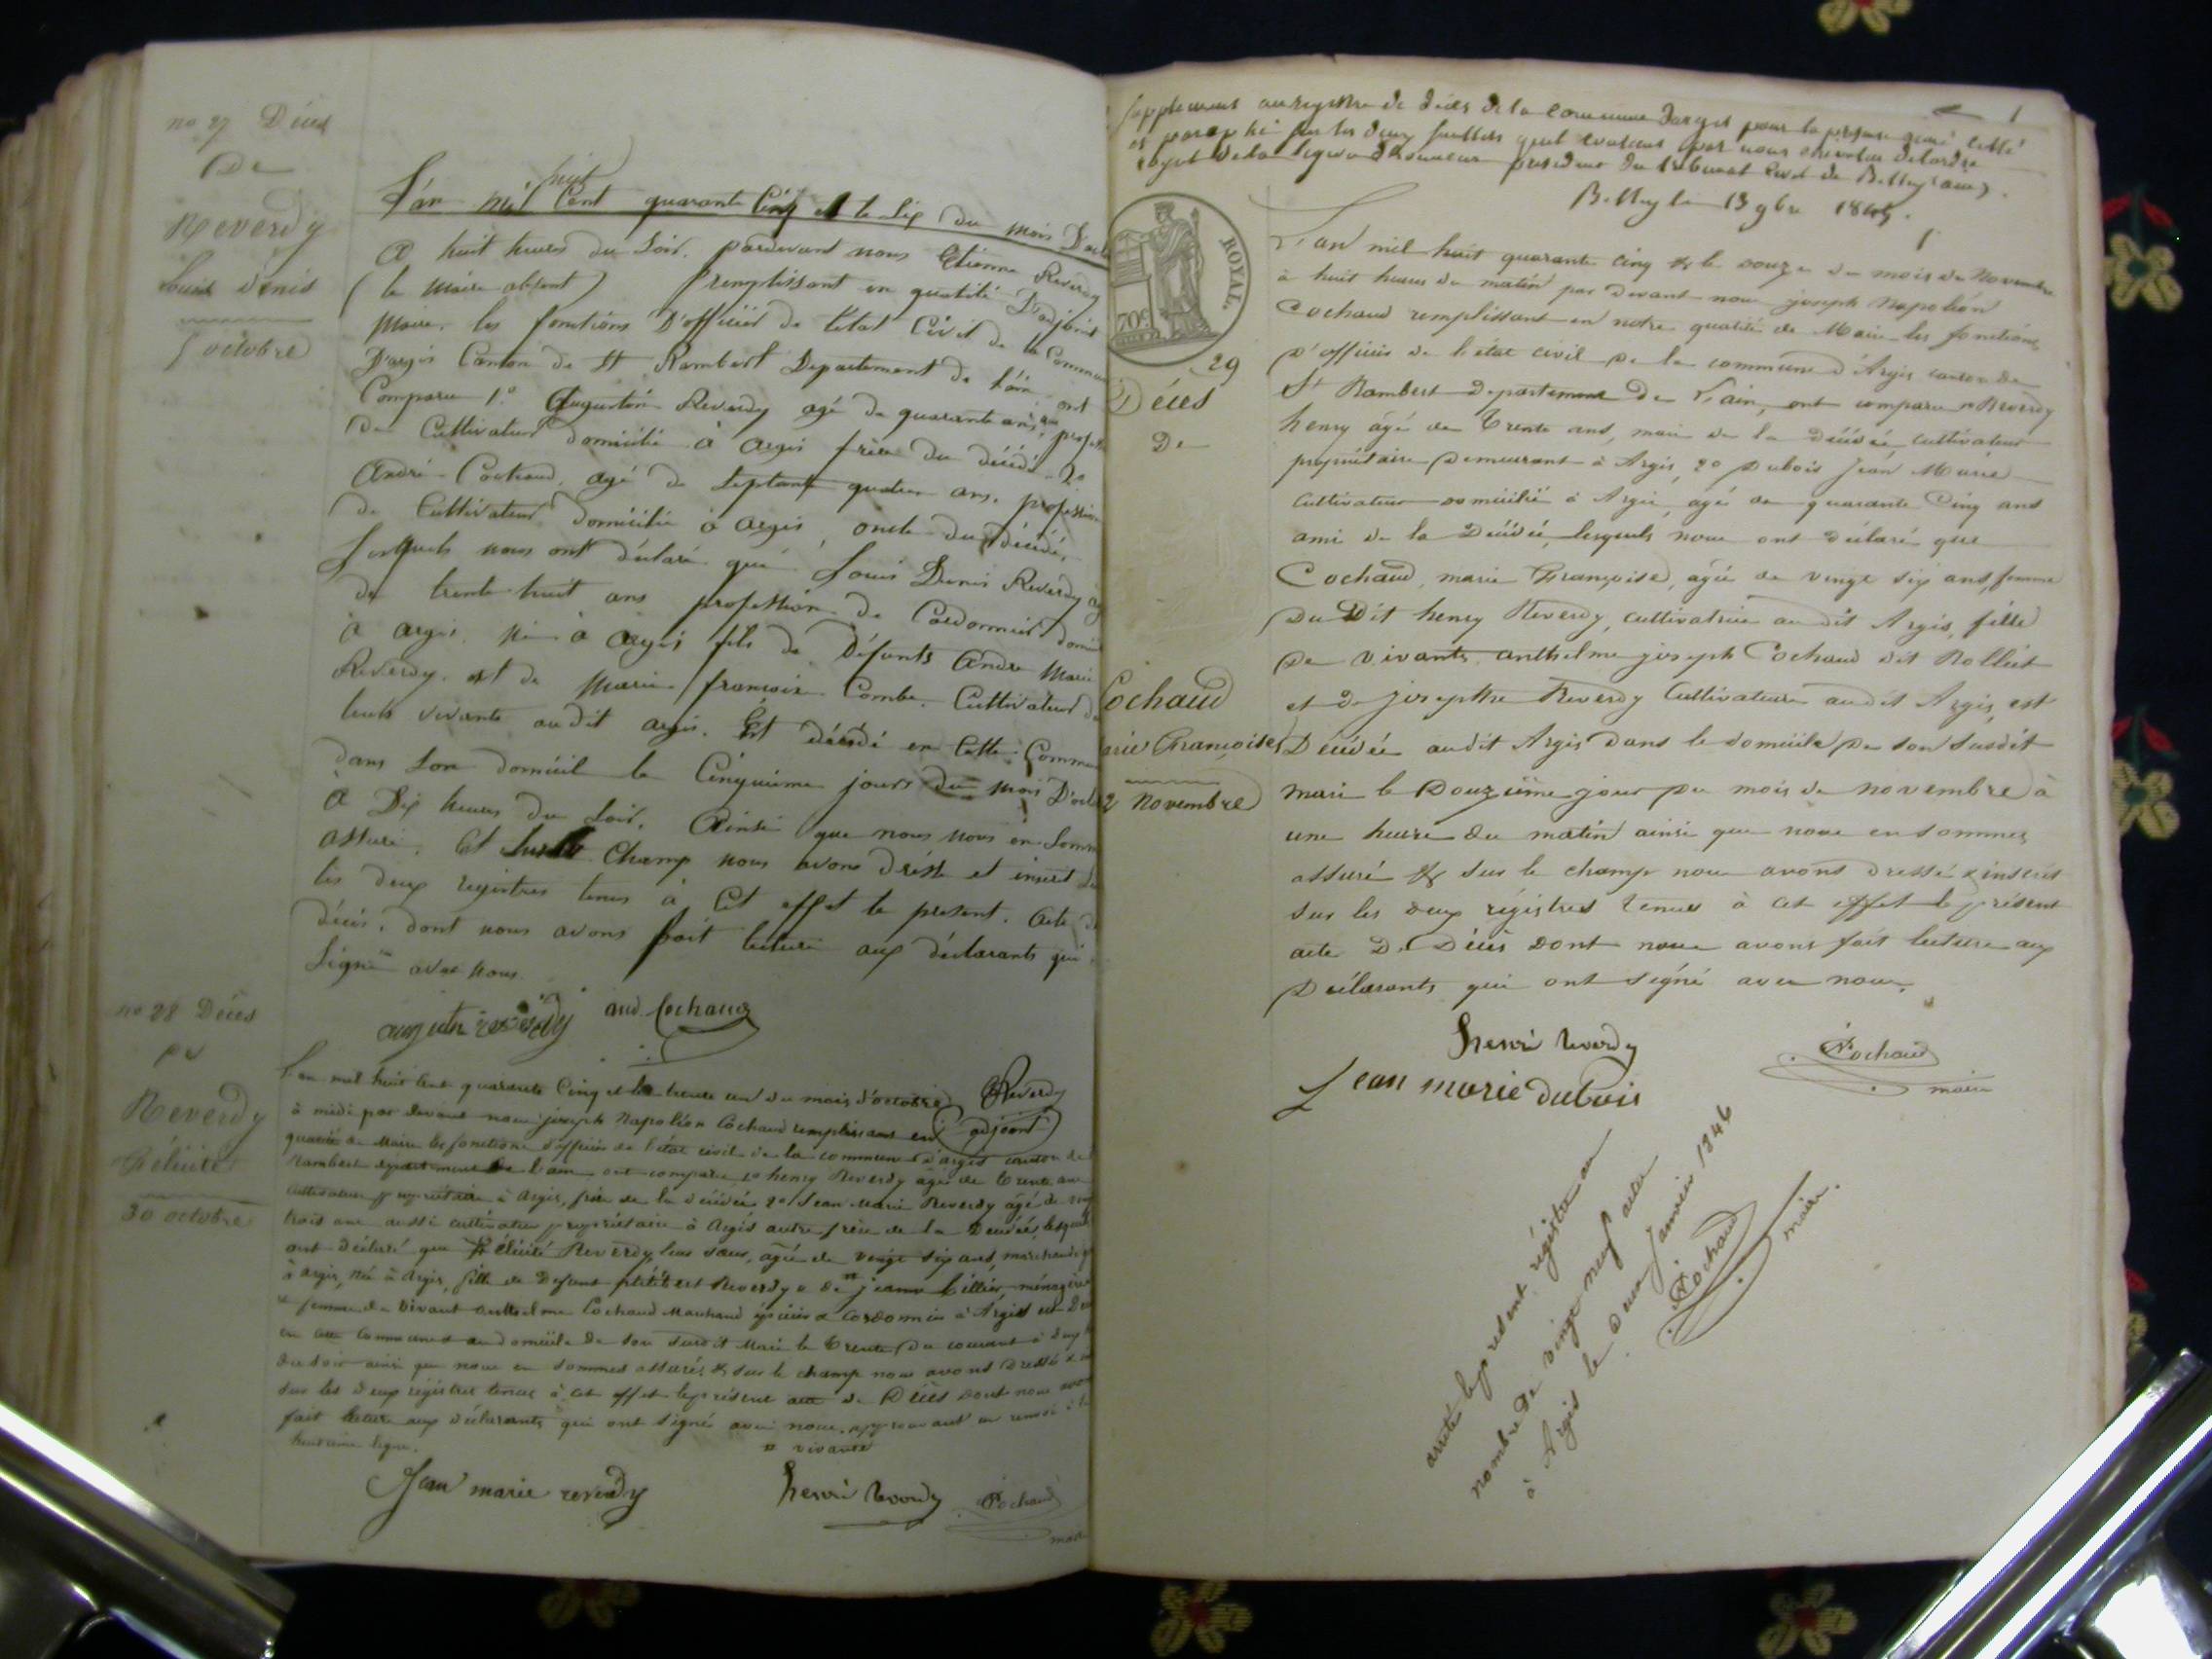 no 27 Décès
De
Reverdy
Louis Denis
5 octobre
L'an mil huit Cent quarante Cinq et le six du mois D'octo
à huit heures du Soir. pardevant nous Etienne Reverdy
(le Maire absent) remplissant en qualité D'adjoint
Maire, les fonctions D'officier de l'état Civil de la Commune
D'argis Canton de St Rambert Departement de L'ain, ont
Comparu 1.° Augustin Reverdy agé de quarante ans, profess
de Cultivateur domicilié à argis frère du décédé 2°
André Cochaud, agé de septante quatre ans. profession
de Cultivateur domicilié à argis, oncle du décédé,
Lesquels nous ont déclaré que Louis Denis Reverdy ag
de trente huit ans profession de Cordonnier domi
à argis. né à argis fils de Défunts André Marie
Reverdy. et de Marie françoise Combe. Cultivateur d
leurs vivants au dit argis. Est décédé en Cette Commu
dans Son domicil le Cinquieme jours du mois D'oct
à Dix heures du Soir. Ainsi que nous nous en Somm
assuré, Et sur le Champ nous avons dréssé et inscrit Su
les deux registres tenus à Cet effet le present. Acte de
décès, dont nous avons fait lecture aux déclarants qui
Signé avec nous
augustin reverdy and. Cochaud
no 28 Décès
De
Reverdy
Félicité
30 octobre
L'an mil huit cent quarante Cinq et le trente un du mois d'octobre EReverdy
à midi par devant nous joseph Napoléon Cochaud remplissant en adjoint
qualité de Maire les fonctions d'officier de l'état civil de la commune d'argis canton de
Rambert département de l'ain ont comparu 1° henry Reverdy âgé de trente ans
cultivateur propriétaire à Argis, frère de la décédée 2° Jean Marie Reverdy âgé de
trois ans aussi cultivateur propriétaire à Argis autre frère de la Décédée, lesquels
ont déclaré que Félicité Reverdy, leur sœur, âgée de vingt six ans, marchande
à Argis, née à Argis, fille de Défunt Reverdy & de jeanne ménagère
& femme de vivant anthelme Cochaud Marchand épicier & Cordonnier à Argis est Dé
en cette Commune au domicile de son susdit Mari le trente Du courant à
du soir ainsi que nous en sommes assuré, & sur le champ nous avons Dressé &
sur les deux régistres tenus à cet effet le présent acte de Décès dont nous avo
fait lecture aux déclarants qui ont signé avec nous. approuvant un renvoi à la
huitième ligne.
¤ vivante
Jean marie reverdy henri reverdy Cochaud
maire
1
Supplement au registre de décès de la commune dargis pour la présente année cotté
et paraphé par les deux feuillets quil contient par nous chevalier de lordre
royal de la legion dhonneur président du tribunal civil de Belley (ain).
Belley le 13 9bre 1845.
ROYAL.
70c
29
Décès
De
Cochaud
arie Françoise
2 Novembre
L'an mil huit quarante cinq & le douze du mois de Novembre
à huit heures du matin par devant nous joseph Napoléon
Cochaud remplissant en notre qualité de Maire les fonctions
D'officier de l'état civil de la commune d'Argis canton de
St Rambert Département De L'ain, ont comparu 1° Reverdy
henry âgé de trente ans, mari de la Décédée, cultivateur
propriétaire Demeurant à Argis, 2° Dubois Jean Marie
Cultivateur domicilié à Argis, agé de quarante Cinq ans
ami de la Décédée, lesquels nous ont déclaré que
Cochaud, marie Françoise, âgée de vingt six ans, femme
Du Dit henry Reverdy, cultivatrice au dit Argis, fille
De vivants anthelme joseph Cochaud dit Rolliet
et de josepthe Reverdy Cultivateurs au dit Argis, est
Décédée audit Argis dans le domicile De son susdit
mari le Douzième jour Du mois de novembre à
une heure du matin ainsi que nous en sommes
assuré & sur le champ nous avons dressé & inscrit
sur les deux régistres tenus à cet effet le présent
acte De Décès dont nous avons fait lecture aux
Déclarants qui ont signé avec nous.
henri reverdy Cochaud
Jean marie dubois maire
arrêté le présent régistre au
nombre De vingt neuf actes
à Argis le Deux Janvier 1846
Cochaud
maire.